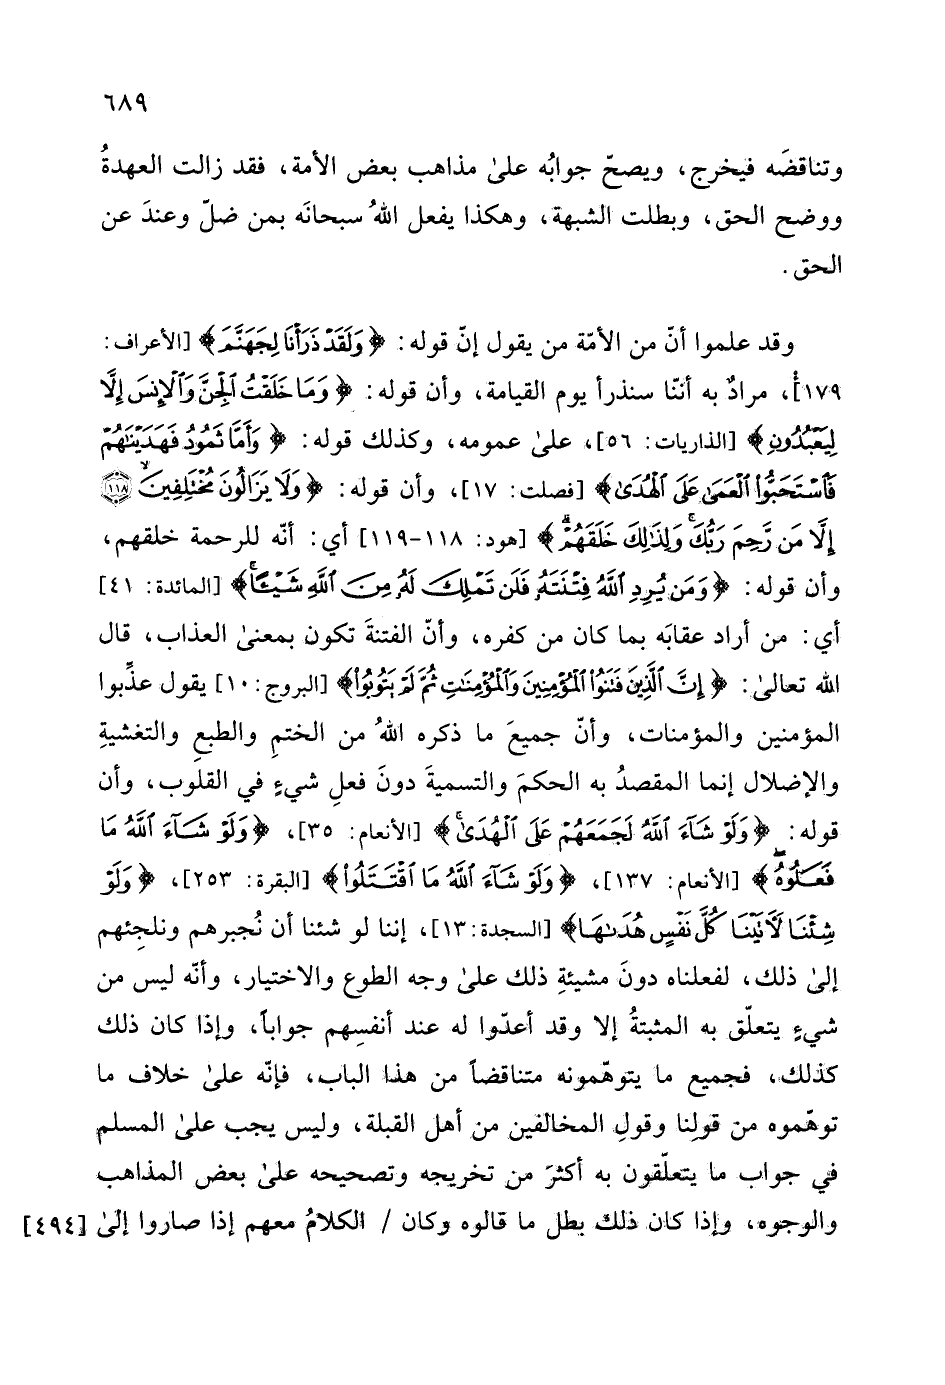 ٦٨٩
وتناقضَه فيخرج، ويصحّ جوابُه علىٰ مذاهب بعض الأمة، فقد زالت العهدةُ
ووضح الحق، وبطلت الشبهة، وهكذا يفعل اللهُ سبحانَه بمن ضلّ وعندَ عن
الحق.
وقد علموا أنّ من الأمّة من يقول إنّ قوله: ﴿وَلَقَدْ ذَرَأْنَا لِجَهَنَّمَ﴾ [الأعراف:
١٧٩]، مرادٌ به أننّا سنذرأ يوم القيامة، وأن قوله: ﴿وَمَا خَلَقْتُ ٱلْجِنَّ وَٱلْإِنسَ إِلَّا
لِيَعْبُدُونِ﴾ [الذاريات: ٥٦]، علىٰ عمومه، وكذلك قوله: ﴿وَأَمَّا ثَمُودُ فَهَدَيْنَٰهُمْ
فَٱسْتَحَبُّوا۟ ٱلْعَمَىٰ عَلَى ٱلْهُدَىٰ﴾ [فصلت: ١٧]، وأن قوله: ﴿وَلَا يَزَالُونَ مُخْتَلِفِينَ ۙ ١١٨
إِلَّا مَن رَّحِمَ رَبُّكَ ۚ وَلِذَٰلِكَ خَلَقَهُمْ ۗ﴾ [هود: ١١٨-١١٩] أي: أنّه للرحمة خلقهم،
وأن قوله: ﴿وَمَن يُرِدِ ٱللَّهُ فِتْنَتَهُۥ فَلَن تَمْلِكَ لَهُۥ مِنَ ٱللَّهِ شَيْـًٔا ۚ﴾ [المائدة: ٤١]
أي: من أراد عقابَه بما كان من كفره، وأنّ الفتنةَ تكون بمعنىٰ العذاب، قال
الله تعالىٰ: ﴿إِنَّ ٱلَّذِينَ فَتَنُوا۟ ٱلْمُؤْمِنِينَ وَٱلْمُؤْمِنَٰتِ ثُمَّ لَمْ يَتُوبُوا۟﴾ [البروج: ١٠] يقول عذّبوا
المؤمنين والمؤمنات، وأنّ جميعَ ما ذكره اللهُ من الختمِ والطبعِ والتغشيةِ
والإضلال إنما المقصدُ به الحكمَ والتسميةَ دونَ فعلِ شيءٍ في القلوب، وأن
قوله: ﴿وَلَوْ شَآءَ ٱللَّهُ لَجَمَعَهُمْ عَلَى ٱلْهُدَىٰ ۚ﴾ [الأنعام: ٣٥]، ﴿وَلَوْ شَآءَ ٱللَّهُ مَا
فَعَلُوهُ ۖ﴾ [الأنعام: ١٣٧]، ﴿وَلَوْ شَآءَ ٱللَّهُ مَا ٱقْتَتَلُوا۟﴾ [البقرة: ٢٥٣]، ﴿وَلَوْ
شِئْنَا لَـَٔاتَيْنَا كُلَّ نَفْسٍ هُدَىٰهَا﴾ [السجدة: ١٣]، إننا لو شئنا أن نُجبرهم ونلجئهم
إلىٰ ذلك، لفعلناه دونَ مشيئةِ ذلك علىٰ وجه الطوع والاختيار، وأنّه ليس من
شيءٍ يتعلّق به المثبتةُ إلا وقد أعدّوا له عند أنفسِهم جواباً، وإذا كان ذلك
كذلك، فجميع ما يتوهّمونه متناقضاً من هذا الباب، فإنّه علىٰ خلاف ما
توهّموه من قولنا وقولِ المخالفين من أهل القبلة، وليس يجب علىٰ المسلم
في جواب ما يتعلّقون به أكثرَ من تخريجه وتصحيحه علىٰ بعض المذاهب
والوجوه، وإذا كان ذلك بطل ما قالوه وكان / الكلامُ معهم إذا صاروا إلىٰ [٤٩٤]